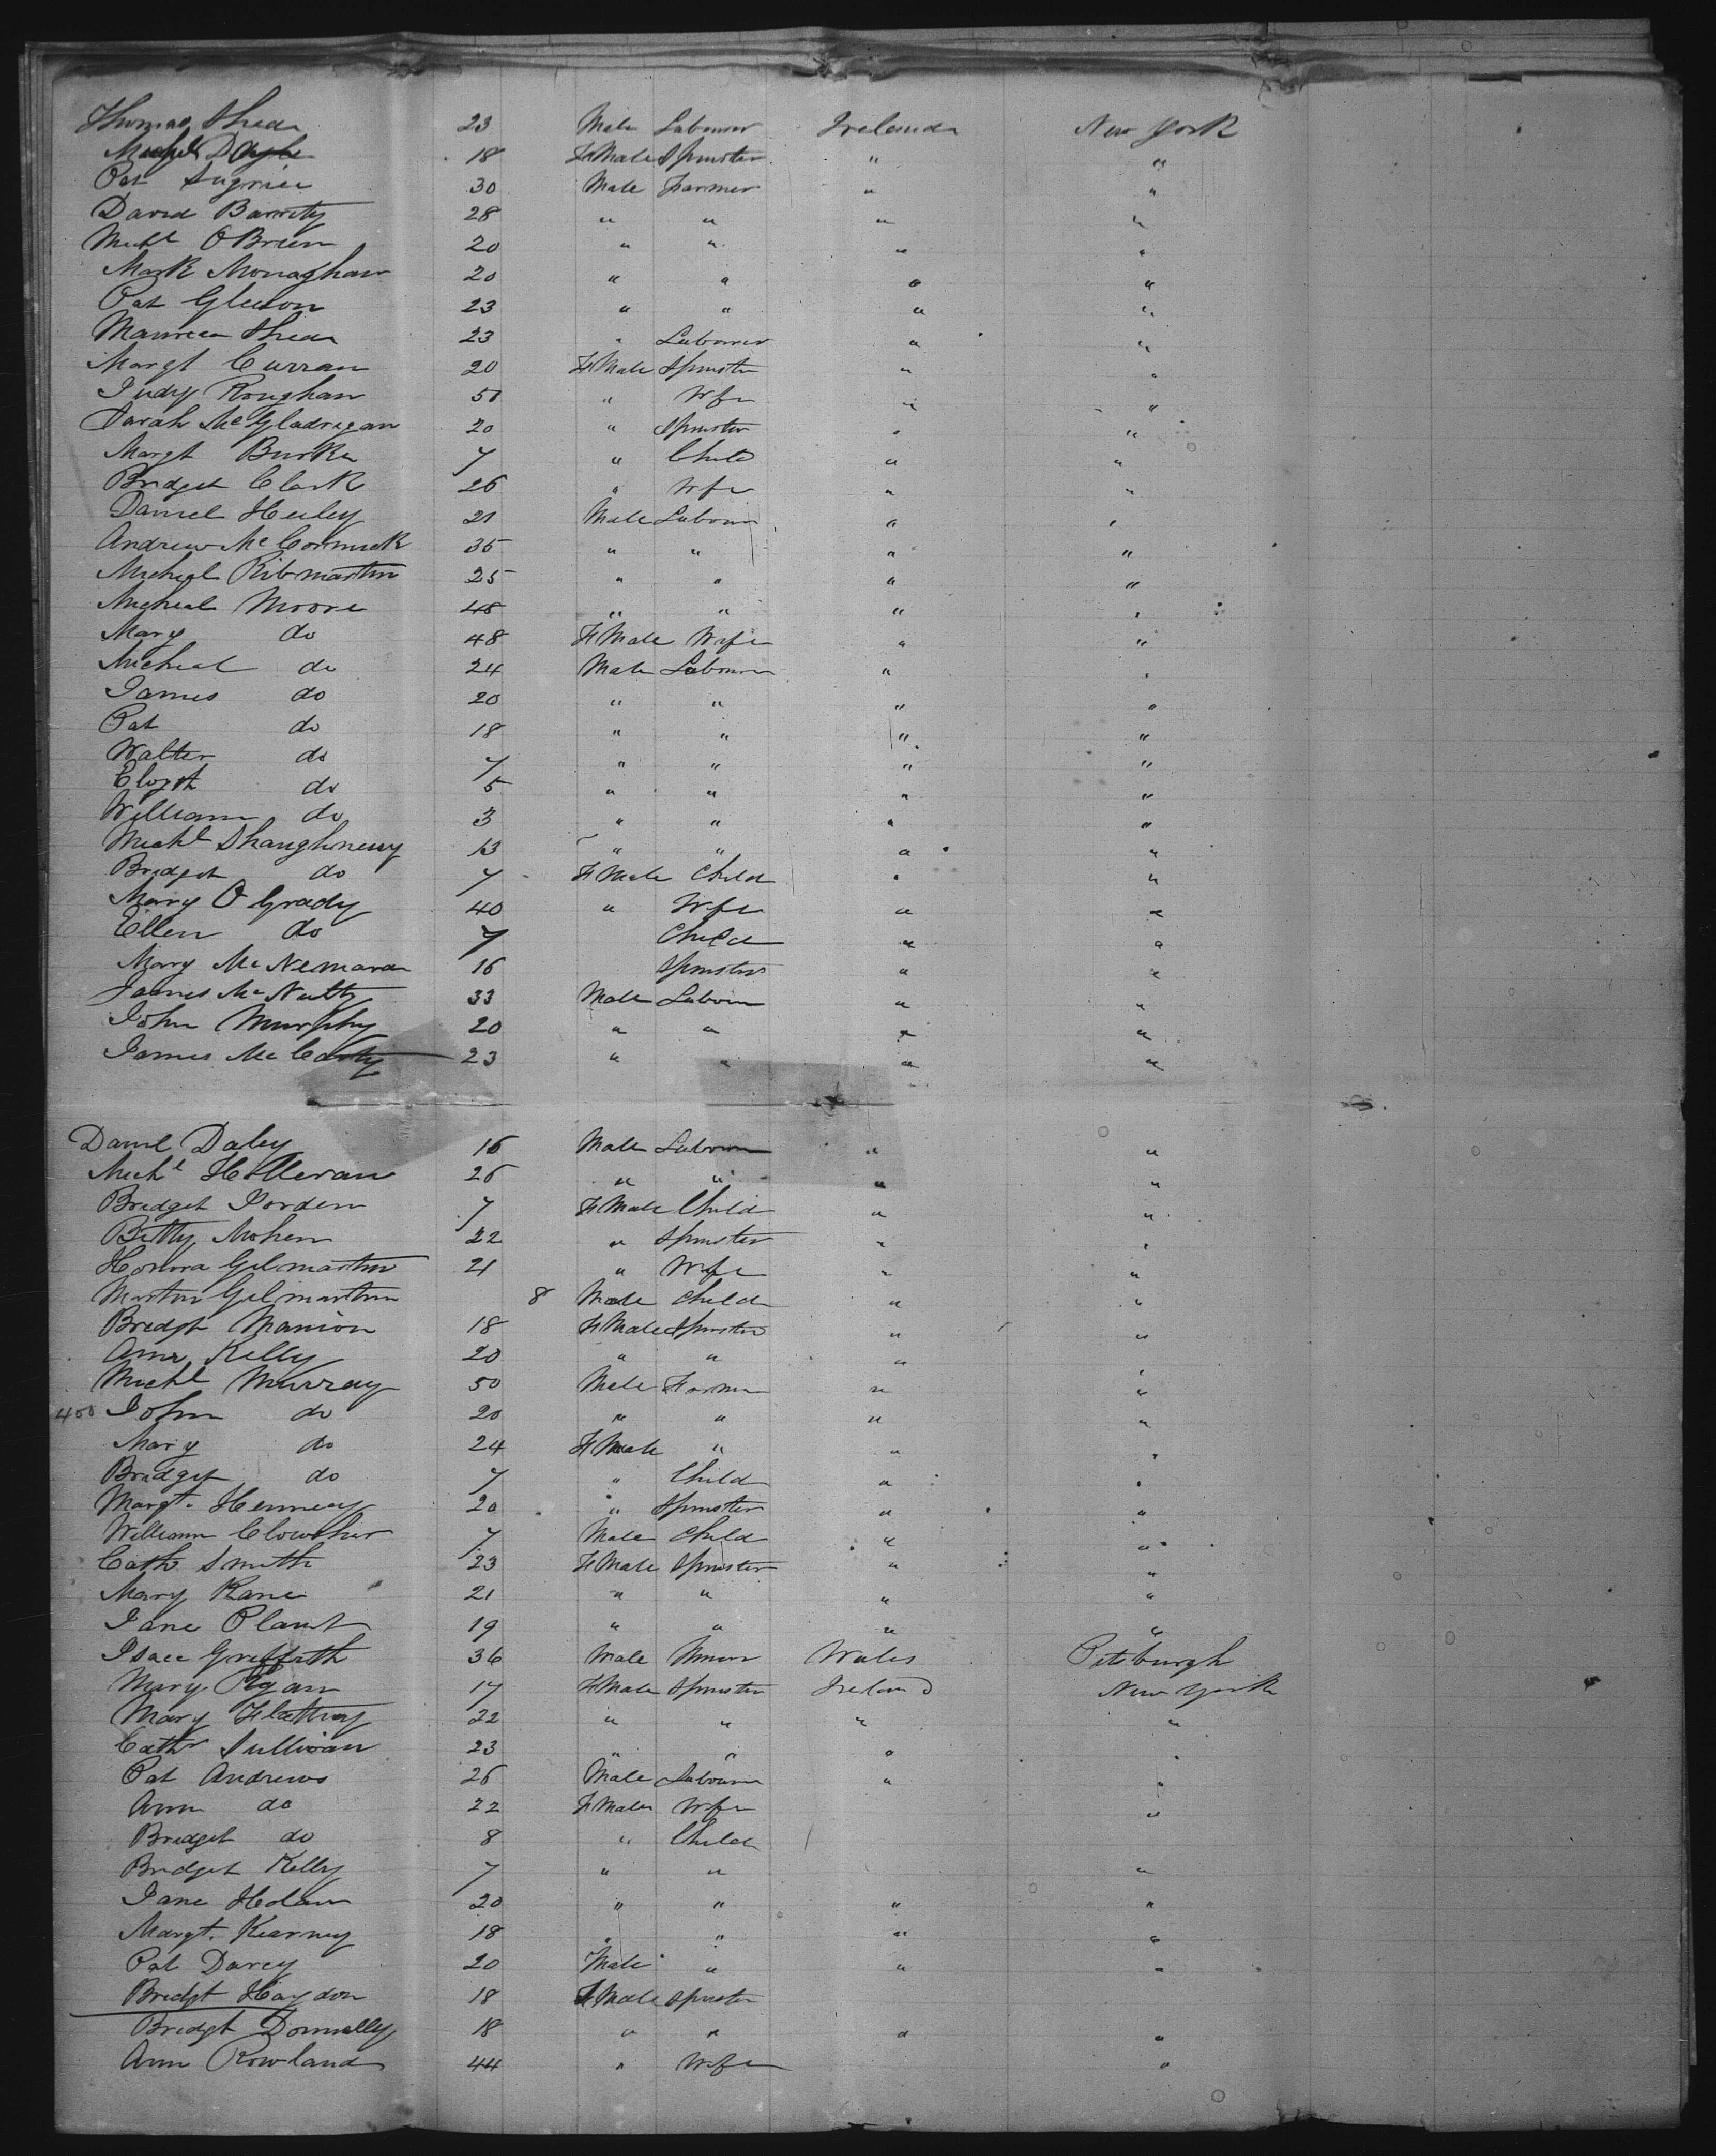 Thomas Shea 23 Male Labourer Ireland New York
18 FMale Spinster " "
Pat Sugrue 30 Male Farmer " "
David Barrity 28 " " " "
Michl O Brien 20 " " " "
Mark Monaghan 20 " " " "
Pat Gleeson 23 " " " "
Maurice Shea 23 " Labourer " "
Margt Curran 20 FMale Spinster " "
Judy Roughan 50 " Wife " "
Sarah Mc Gladrigan 20 " Spinster " "
Margt Burke 7 " Child " "
Bridget Clark 26 " Wife " "
Daniel Heeley 21 Male Labour " "
Andrew Mc Cormick 35 " " " "
Micheal Kibmartin 25 " " " "
Micheal Moore 48 " " " "
Mary do 48 FMale Wife " "
Micheal do 24 Male Labour " "
James do 20 " " " "
Pat do 18 " " " "
Walter do 7 " " " "
do 5 " " " "
William do 3 " " " "
Michl Shaughnessy 13 " " " "
Bridget do 7 FMale Child " "
Mary O Grady 40 " Wife " "
Ellen do 7 Child " "
Mary Mc Nemara 16 Spinster " "
James Mc Nulty 33 Male Labour " "
John Murphy 20 " " " "
James Mc Carty 23 " " " "
Daniel Daley 16 Male Labour " "
Michl Holleran 26 " " " "
Bridget Jorden 7 FMale Child " "
Bitty Mohen 22 " Spinster " "
Honora Gilmartin 21 " Wife " "
Martin Gilmartin 8 Male Child " "
Bredgt Manion 18 FMale Spinster " "
Ann Kelly 20 " " " "
Michl Murray 50 Male Farmer " "
400 John do 20 " " " "
Mary do 24 FMale " " "
Bridget do 7 " Child " "
Margt. Hennesy 20 " Spinster " "
William Clowsher 7 Male Child " "
Cath Smith 23 FMale Spinster " "
Mary Kane 21 " " " "
Jane Plant 19 " " " "
Isaac Griffith 36 Male Miner Wales Pitsburgh
Mary Ryan 17 FMale Spinster Ireland New York
Mary Flattrey 22 " " " "
Cathr Sullivan 23 " " " "
Pat Andrews 26 Male Labourer " "
Ann do 22 FMale Wife "
Bredget do 8 " Child
Bredget Kelly 7 " " "
Jane Holan 20 " " " "
Margt. Kearney 18 " " " "
Pat Darcy 20 Male " " "
Bredgt Haydon 18 FMale Spinster
Bredgt Donnelly 18 " " " "
Ann Rowland 44 " Wife "